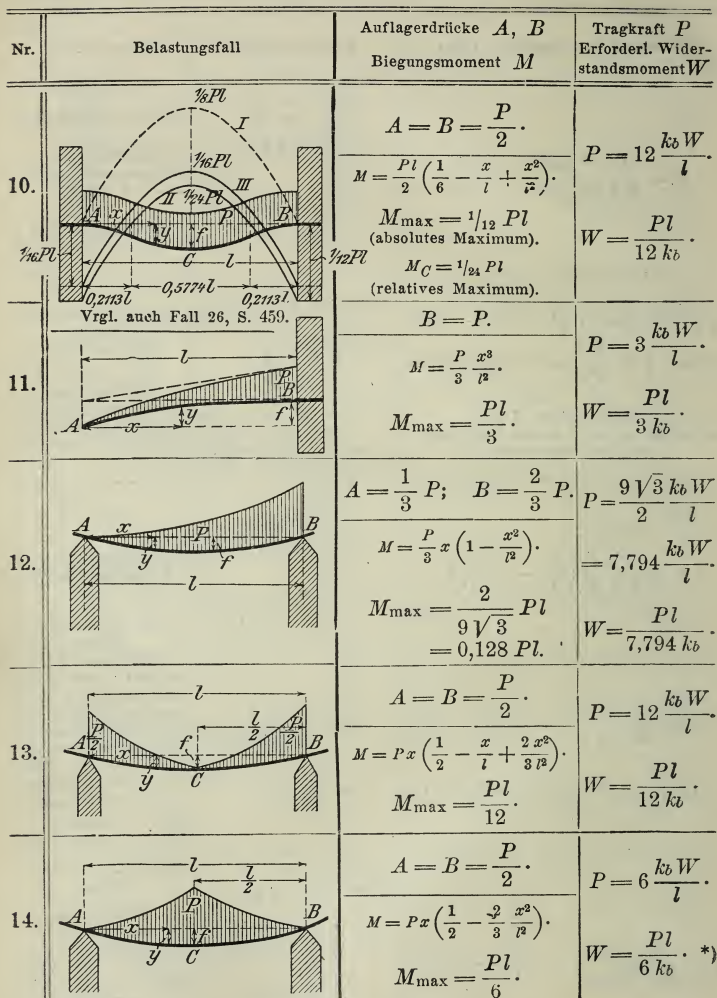 Nr.
Belastungsfall
Auflagerdrücke A, B
Biegungsmoment M
Tragkraft P
Erforderl. Wider-
standsmoment W
10.
1/8 Pl
I
1/16 Pl
III
II 1/24 Pl
A x y P f B
C
l
1/16 Pl
1/12 Pl
0,2113l 0,5774l 0,2113l
Vrgl. auch Fall 26, S. 459.
A = B = P/2 ·
M = Pl/2 (1/6 − x/l + x²/l²)·
Mmax = 1/12 Pl
(absolutes Maximum).
MC = 1/24 Pl
(relatives Maximum).
P = 12 kb W/l ·
W = Pl/12 kb ·
11.
l
P
B
A x y f
B = P.
M = P/3 x³/l² ·
Mmax = Pl/3 ·
P = 3 kb W/l ·
W = Pl/3 kb ·
12.
A x y P f B
l
A = 1/3 P; B = 2/3 P.
M = P/3 x (1 − x²/l²)·
Mmax = 2/9√3 Pl
= 0,128 Pl.
P = 9√3/2 kb W/l
= 7,794 kb W/l ·
W = Pl/7,794 kb ·
13.
l
l/2
A P/2 x y f C P/2 B
A = B = P/2 ·
M = Px (1/2 − x/l + 2/3 x²/l²)·
Mmax = Pl/12 ·
P = 12 kb W/l ·
W = Pl/12 kb ·
14.
l
l/2
A x y P f C B
A = B = P/2 ·
M = Px (1/2 − 2/3 x²/l²)·
Mmax = Pl/6 ·
P = 6 kb W/l ·
W = Pl/6 kb · *)